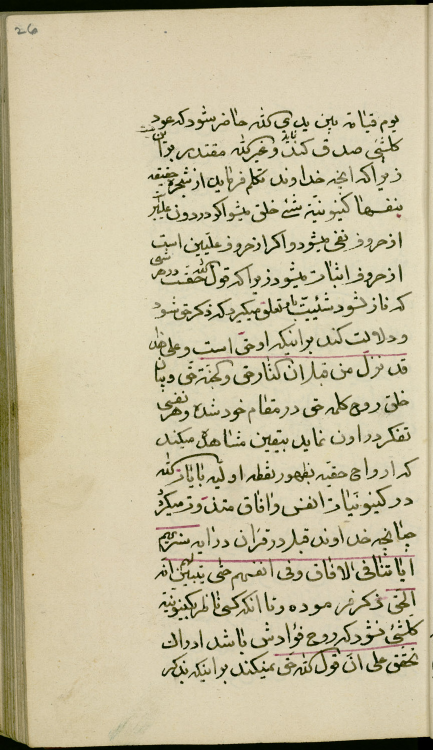 26
یوم قیامة بین یدی الله حاضر شود که عود
کلشئ صدق کند و غیر الله مقتدر بر
زیرا که آنچه خداوند تکلم فرماید از شجره حقیقة
بنفسها کینونیة شئ خلق میشود اگر در دون علیین
از حروف نفی میشود و اگر از حروف علیین است
از حروف اثبات میشود زیرا که قول الله حق است و در هر شئ
که نازل شود شیئیت با و تعلق میگیرد که ذکر حق شود
و دلالت کند بر اینکه او حق است و علی
قد نزل من قبل ان النار حق و الجنة حق و بیان
خلق روح کل حق در مقام خود شده و هر نفسی
تفکر در اون نماید بیقین مشاهده میکند
که ارواح حقه بظهور نقطه اولیه بآیات الله
در کینونیات انفس و آفاق متذوت میگردد
چنانچه خداوند قبل در قرآن در آیه سنریهم
آیاتنا فی الآفاق و فی انفسهم حتی یتبین لهم انه
الحق ذکر فرموده و تا آنکه کسی ناظر بکینونیة
کلشئ نشود که روح فؤادش باشد ادراک
تحقق علی آن قول الله حق نمیکند بر اینکه بذکر